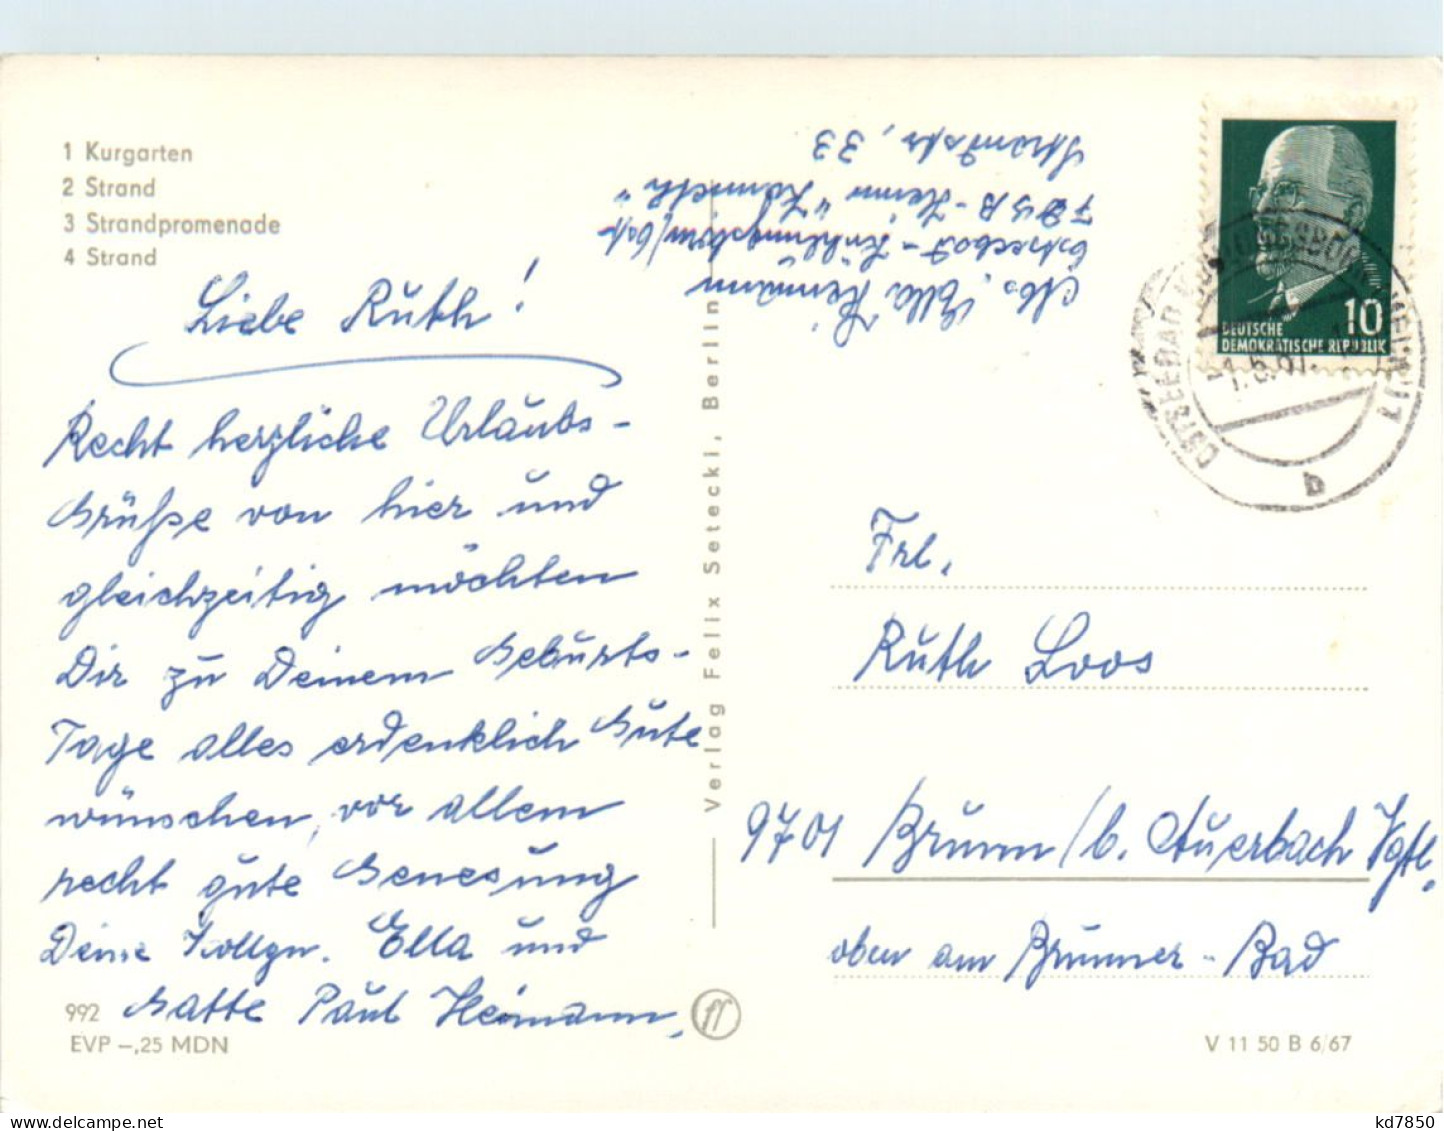 1 Kurgarten
2 Strand
3 Strandpromenade
4 Strand
Liebe Ruth!
Recht herzliche Urlaubs-
Grüße von hier und
gleichzeitig möchten
Dir zu Deinem Geburts-
Tage alles erdenklich Gute
wünschen, vor allem
recht gute Genesung
Deine Kollgn. Ella und
Gatte Paul Heimann,
992
EVP -,25 MDN
Verlag Felix Setecki, Berlin
Abs, Ella Heimann
Ostseebad - Kühlungsborn/Ost
FDGB - Heim "
Strandstr, 33
10
DEUTSCHE
DEMOKRATISCHE REPUBLIK
OSTSEEBAD KÜHLUNGSBORN
b
Frl.
Ruth Loos
9701 Brunn/b. Auerbach Vgtl.
oben am Brunner-Bad
V 11 50 B 6/67
www.delcampe.net
kd7850